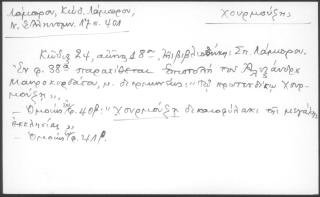 Λάμπρου, Κώδ. Λάμπρου,
Ν. Ἑλληνομν. 17 σ. 401
Χουρμούζης
Κῶδιξ 24, αἰῶνος 18ου, Βιβλιοθήκη: Σπ. Λάμπρου.
Ἐν φ. 38α παρατίθεται ἐπιστολή τοῦ Ἀλεξάνδρου
Μαυροκορδάτου, μ. διερμηνέως: "Τῷ πρωτεκδίκῳ Χουρ-
μούζῃ".
- Ὁμοίως φ. 40β: "Χουρμούζῃ δικαιοφύλακι τῆς μεγάλης
ἐκκλησίας",
- Ὁμοίως φ. 41β.